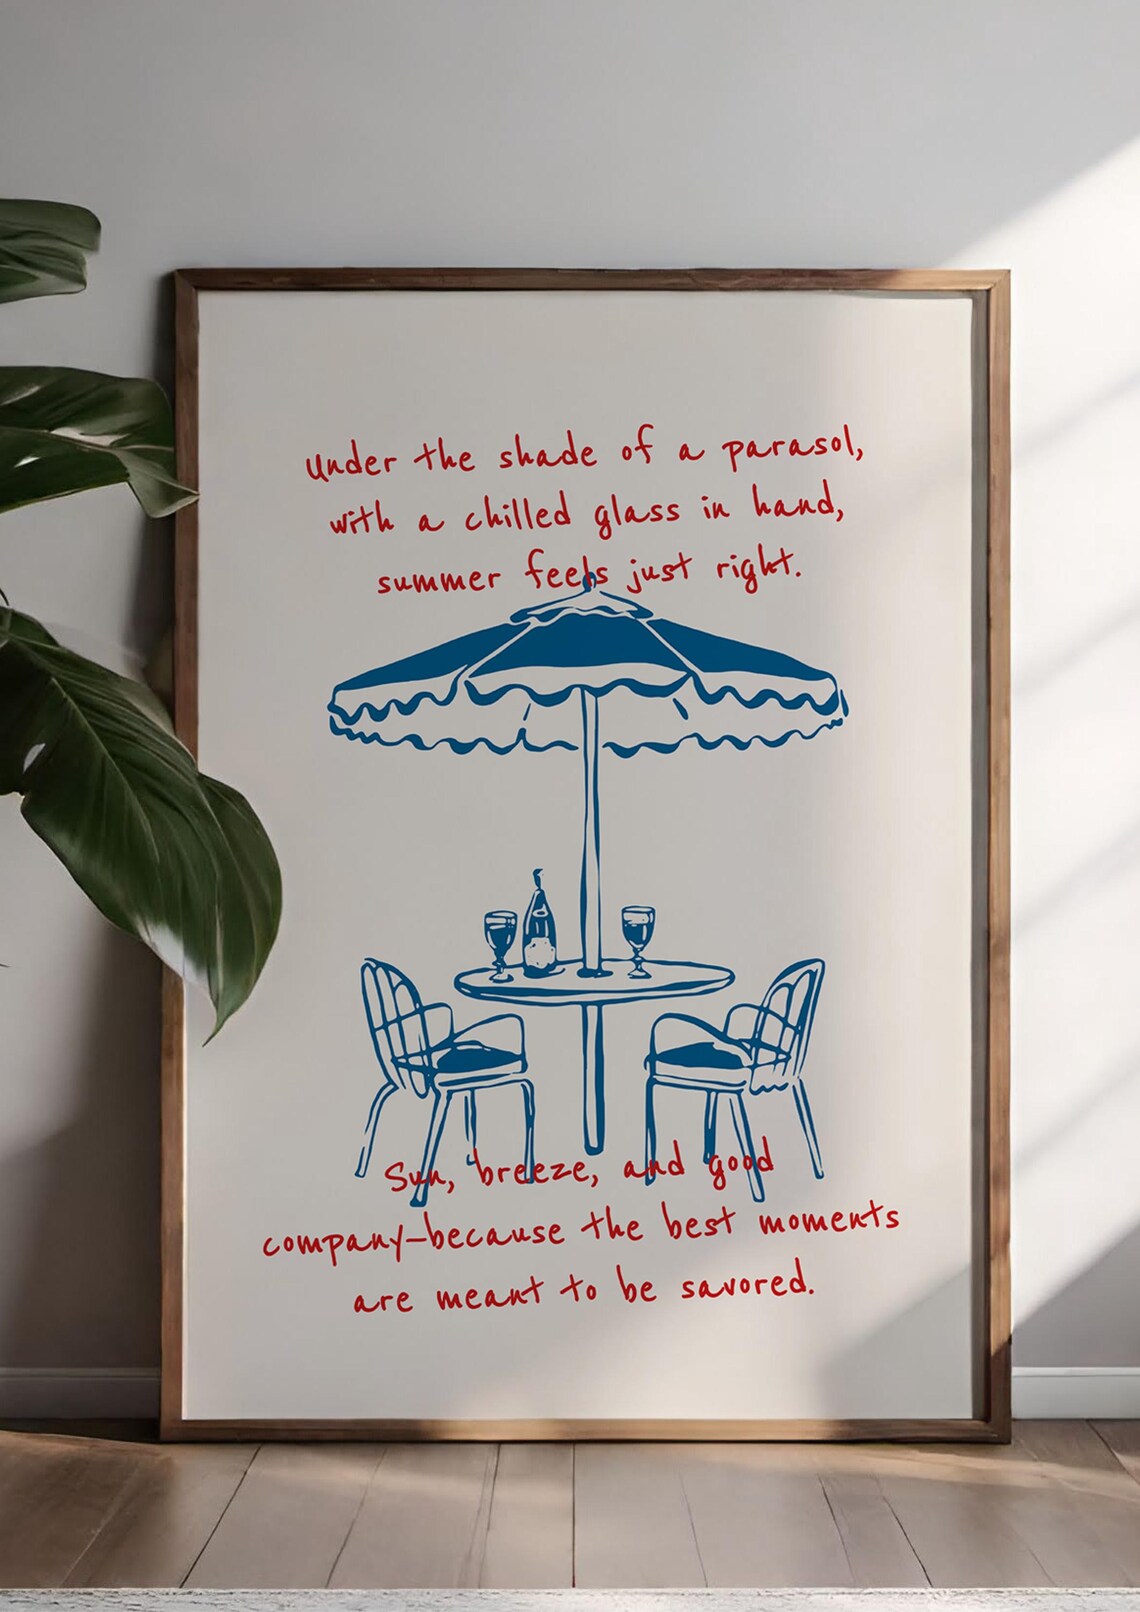 Under the shade of a parasol,
with a chilled glass in hand,
summer feels just right.
Sun, breeze, and good
company—because the best moments
are meant to be savored.